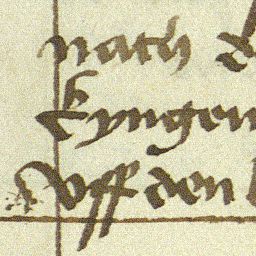 nach
Eyngen
Vff den